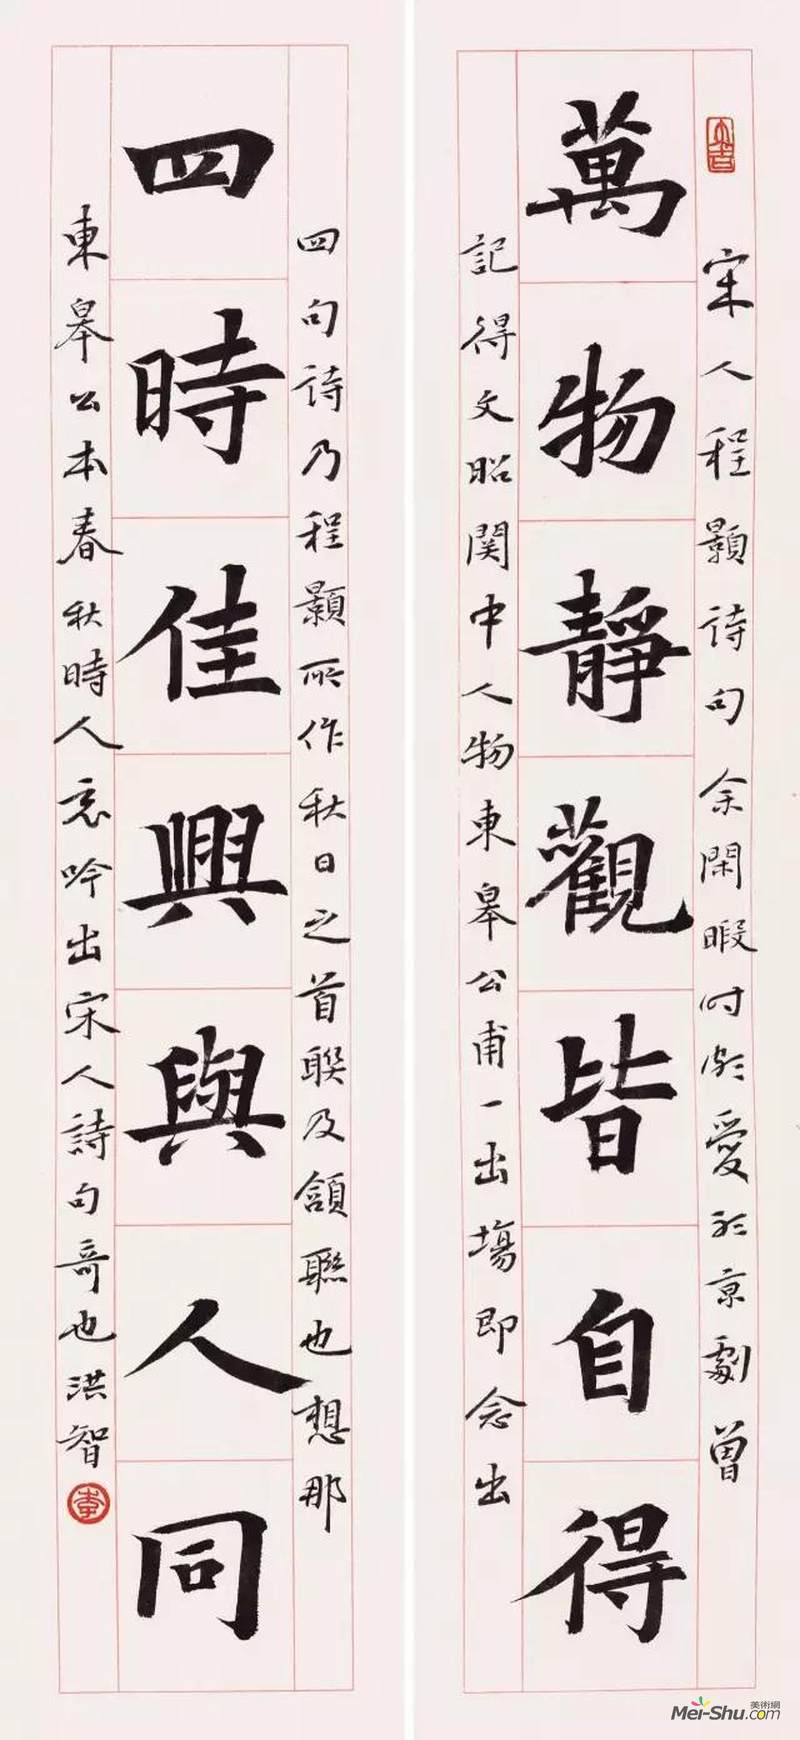 萬物靜觀皆自得
宋人程顥詩句余閑暇时頗愛於京劇曾
記得文昭関中人物東皋公甫一出場即念出
四時佳興與人同
四句詩乃程顥所作秋日之首聯及頷聯也想那
東皋公本春秋時人怎吟出宋人詩句哥也洪智
美術網
Mei-Shu.com